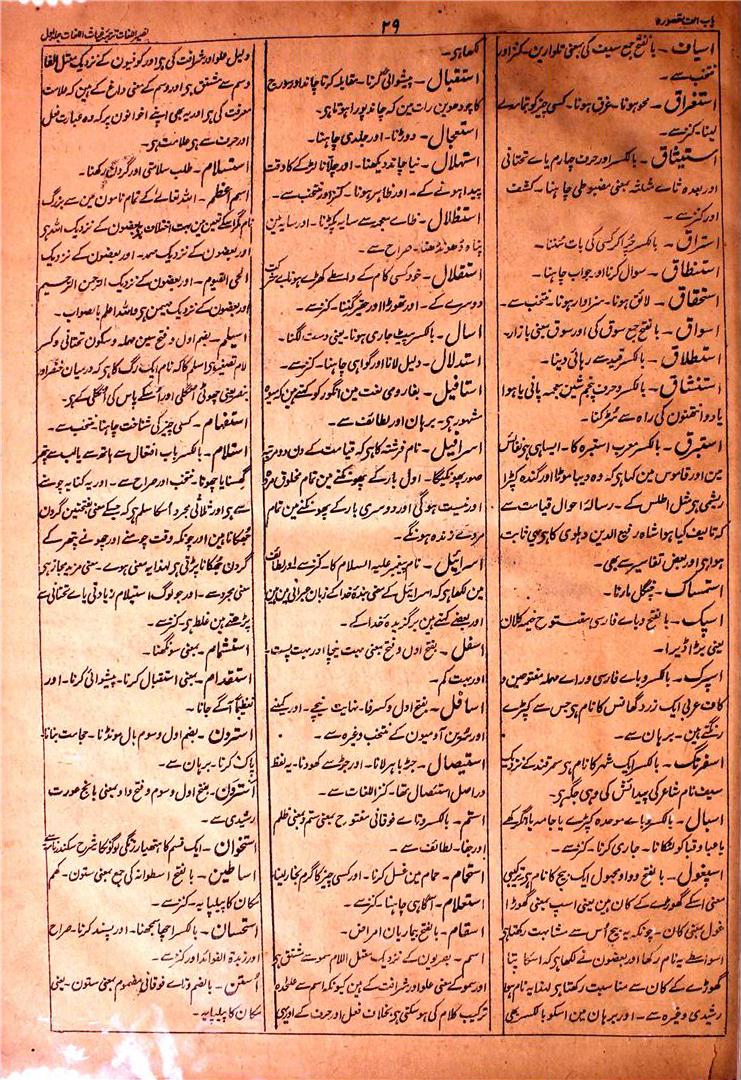 باب الف مقصورہ
۲۹
نصیر اللغات ترجمہ غیاث اللغات جلد اول
اسیاف۔ بالفتح جمع سیف کی بمعنی تلوارین۔ کنز اور
منتخب سے۔
استغراق۔ محو ہونا۔ غرق ہونا۔ کسی چیز کو تمامے
لینا۔ کنز سے۔
استیثاق۔ بالکسر اور حرف چہارم یاے تحتانی
اور بعدہ ثاے مثلثہ بمعنی مضبوطی چاہنا۔ کشف
اور کنز سے۔
استراق۔ بالکسر چرا کر کسی کی بات سننا۔
استنطاق۔ سوال کرنا اور جواب چاہنا۔
استحقاق۔ لائق ہونا۔ سزاوار ہونا۔ منتخب سے۔
اسواق۔ بالفتح جمع سوق کی اور سوق بمعنی بازار۔
استطلاق۔ بالکسر قید سے رہائی دینا۔
استنشاق۔ بالکسر و حرف پنجم شین معجمہ پانی یا ہوا
یا دوا نتھنون کی راہ سے سڑکنا۔
استبرق۔ بالکسر معرب استبرہ کا۔ ایسا ہی ہے نفائس
مین اور قاموس مین کہا ہے کہ وہ دیبا موٹا اور گندہ کپڑا
ریشمی ہے مثل اطلس کے۔ رسالۂ احوال قیامت سے
کہ تالیف کیا ہوا شاہ رفیع الدین دہلوی کا ہے یہی ثابت
ہوا ہے اور بعض تفاسیر سے بھی۔
استمساک۔ چنگل مارنا۔
اسپک۔ بالفتح و باے فارسی مفتوح خیمہ کلان
یعنی بڑا ڈیرا۔
اسپرک۔ بالکسر و باے فارسی و راے مہملہ مفتوحین و
کاف عربی ایک زرد گھانس کا نام ہے جس سے کپڑے
رنگتے ہین۔ برہان سے۔
اسفرنگ۔ بالکسر ایک شہر کا نام ہے سمرقند کے نزدیک
سیف نام شاعر کی پیدائش کی وہی جگہ ہے۔
اسبال۔ بالکسر و باے موحدہ کپڑے یا جامہ یا انگرکھے
یا عبا و قبا کو لٹکانا۔ جاری کرنا۔ کنز سے۔
اسپغول۔ بالفتح و واو مجہول ایک بیج کا نام ہے ترکیبی
معنی اسکے گھوڑے کے کان ہین یعنی اسپ بمعنی گھوڑا
غول بمعنی کان۔ چونکہ یہ بیج اُس سے مشابہت رکھتا ہے
اسواسطے یہ نام رکھا اور بعضون نے لکھا ہے کہ اسکا پتا
گھوڑے کے کان سے مناسبت رکھتا ہے لہذا یہ نام ہوا
رشیدی وغیرہ سے۔ اور برہان مین اسکو بالکسر بھی
لکھا ہے۔
استقبال۔ پیشوائی کرنا۔ مقابلہ کرنا چاند اور سورج
کا چودھوین رات مین کہ چاند پورا ہوتا ہے۔
استعجال۔ دوڑنا۔ اور جلدی چاہنا۔
استہلال۔ نیا چاند دیکھنا۔ اور چلانا لڑکے کا وقت
پیدا ہونے کے۔ اور ظاہر ہونا۔ کنز اور منتخب سے۔
استظلال۔ ظاے معجمہ سے سایہ پکڑنا۔ اور سایہ مین
پناہ ڈھونڈھنا۔ صراح سے۔
استقلال۔ خود کسی کام کے واسطے کھڑے ہونا بے شرکت
دوسرے کے۔ اور تھوڑا اور حقیر گننا۔ کنز سے۔
اسہال۔ بالکسر پیٹ جاری ہونا۔ یعنی دست لگنا۔
استدلال۔ دلیل لانا اور گواہی چاہنا۔ کنز سے۔
استافیل۔ بفا رومی لغت مین انگور کو کہتے ہین کہ میوہ
مشہور ہے۔ برہان اور لطائف سے۔
اسرافیل۔ نام فرشتہ کا ہے کہ قیامت کے دن دو مرتبہ
صور پھونکیگا۔ اول بار کے پھونکنے مین تمام مخلوق مردہ
اور نیست ہوگی اور دوسری بار کے پھونکنے مین تمام
مردے زندہ ہونگے۔
اسرائیل۔ نام پیغمبر علیہ السلام کا۔ کنز سے اور لطائف
مین لکھا ہے کہ اسرائیل کے معنی بندۂ خدا کے زبان عبرانی مین ہین
اور بعضے کہتے ہین برگزیدہ خدا کے۔
اسفل۔ بفتح اول و فتح بمعنی بہت نیچا اور بہت پست۔
اور بہت کم۔
اسافل۔ بفتح اول و کسر فا۔ نہایت نیچے۔ اور کمینے
اور سُرین آدمیون کے منتخب وغیرہ سے۔
استیصال۔ جڑ باہر لانا۔ اور جڑ سے کھودنا۔ یہ لفظ
دراصل استئصال تھا۔ کنز اللغات سے۔
استم۔ بالکسر و تاے فوقانی مفتوح بمعنی ستم و بمعنی ظلم
اور جفا۔ لطائف سے۔
استحمام۔ حمام مین غسل کرنا۔ اور کسی چیز کا گرم بخار لینا۔
استعلام۔ آگاہی چاہنا۔ کنز سے۔
اسقام۔ بالفتح بیماریان امراض۔
اسم۔ بصریون کے نزدیک معتل اللام سمو سے مشتق ہے
اور سمو کے معنی علو اور شرافت کے ہین کیونکہ اسم سے علٰحدہ
ترکیب کلام کی ہو سکتی ہے بخلاف فعل اور حرف کے اور یہی
دلیل علو اور شرافت کی ہے اور کوفیون کے نزدیک معتل الفا
وسم سے مشتق ہے اور وسم کے معنی داغ کے ہین کہ علامت
معرفت کی ہے اور یہ بھی اپنے اخوانون پر کہ وہ عبارت فعل
اور حرف سے ہے علامت ہے۔
استسلام۔ طلب سلامتی اور گردن رکھنا۔
اسم اعظم۔ اللہ تعالیٰ کے تمام نامون مین سے بزرگ
نام مگر اسکے تعین مین بہت اختلاف ہے بعضون کے نزدیک اللہ ہے
اور بعضون کے نزدیک صمد۔ اور بعضون کے نزدیک
الحی القیوم۔ اور بعضون کے نزدیک الرحمن الرحیم
اور بعضون کے نزدیک مہیمن ہے واللہ اعلم بالصواب۔
اسیلم۔ بضم اول و فتح سین مہملہ و سکون تحتانی و کسر
لام تصغیر ہے اسلم کا کہ نام ایک رگ کا ہے کہ درمیان خنصر اور
بنصر یعنی چھوٹی انگلی اور اُسکے پاس کی انگلی کے ہے۔
استفہام۔ کسی چیز کی شناخت چاہنا۔ منتخب سے۔
استلام۔ بالکسر باب افتعال سے ہاتھ سے یا لب سے پتھر
گھسنا یا چھونا۔ منتخب اور صراح سے۔ اور یہ کنایہ چومنے
سے ہے اور ثلاثی مجرد اسکا سلم ہے کہ جسکے معنی بفتحتین گردن
جُھکانا ہین اور چونکہ وقت چومنے اور چھونے پتھر کے
گردن جُھکانا پڑتی ہے لہذا یہ معنی ہوے۔ معنی مزید مجاز ہے
معنی مجرد سے۔ اور جو لوگ استیلام زیادتی یاے تحتانی سے
پڑھتے ہین غلط ہے کنز سے۔
استشمام۔ بمعنی سونگھنا۔
استقدام۔ بمعنی استقبال کرنا۔ پیشوائی کرنا۔ اور
تعظیماً آگے جانا۔
استرون۔ بضم اول و سوم بال مونڈنا۔ حجامت بنانا۔
پاک کرنا۔ برہان سے۔
استرون۔ بفتح اول و سوم و فتح واو بمعنی بانجھ عورت
رشیدی سے۔
استخوان۔ ایک قسم کا ہتھیار زنگی لوگو نکا شرح سکندرنامہ سے
اساطین۔ بالفتح اسطوانہ کی جمع بمعنی ستون۔ کھم
مکان کا پیلپایہ۔ کنز سے۔
استحسان۔ بالکسر اچھا سمجھنا۔ اور پسند کرنا۔ صراح
اور زبدۃ الفوائد اور کنز سے۔
اُستن۔ بالضم و تاے فوقانی مضموم بمعنی ستون۔ یعنی
مکان کا پیلپایہ۔